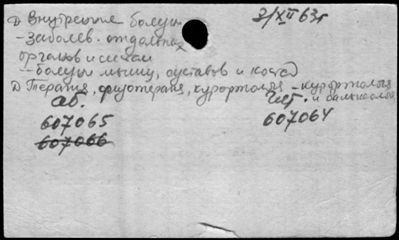 Д Внутренние болезни 2/XII 63г
- заболев. отдельных
органов и систем
- болезни мышц, суставов и костей
Д Терапия, физиотерапия, курортология - курортология
аб. Чит. и бальнеолог
607065 607064
607066